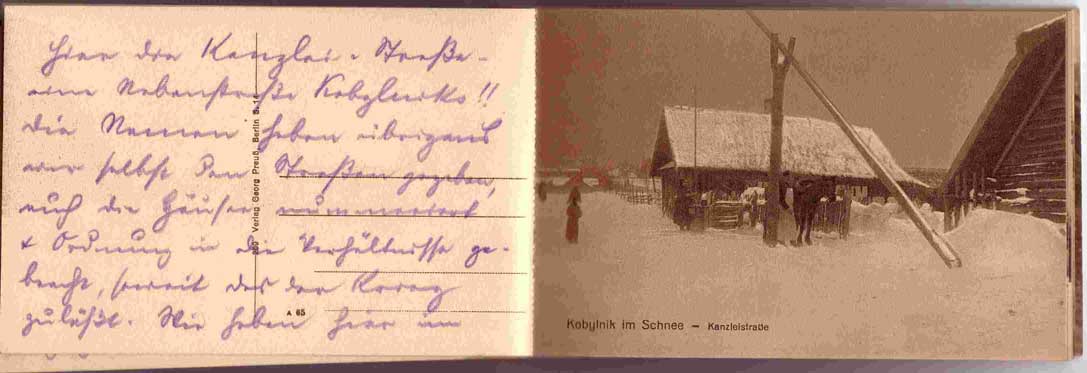 Hier die Kanzlei-Straße -
eine Nebenstraße Kobylniks!!
die Namen haben übrigens
wir selbst den Straßen gegeben,
auch die Häuser nummeriert
& Ordnung in die Verhältnisse ge-
bracht, soweit das der Krieg
zuläßt. Wir haben hier im
Verlag Georg Preuß, Berlin S. 14
A 65
Kobylnik im Schnee — Kanzleistraße